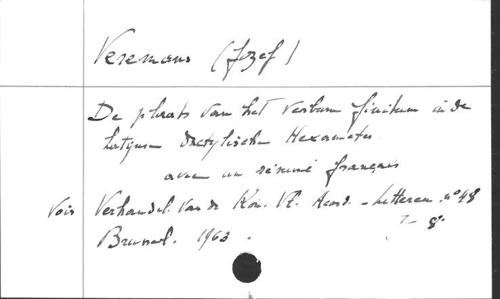 Veremans (Jozef)
De plaats van het verbum finitum in de
Latijnse dactylische Hexameter
avec un résumé français
Vois Verhandel. van de Kon. Vl. Acad. - Letteren. n° 48
Brussel. 1963. - 8°